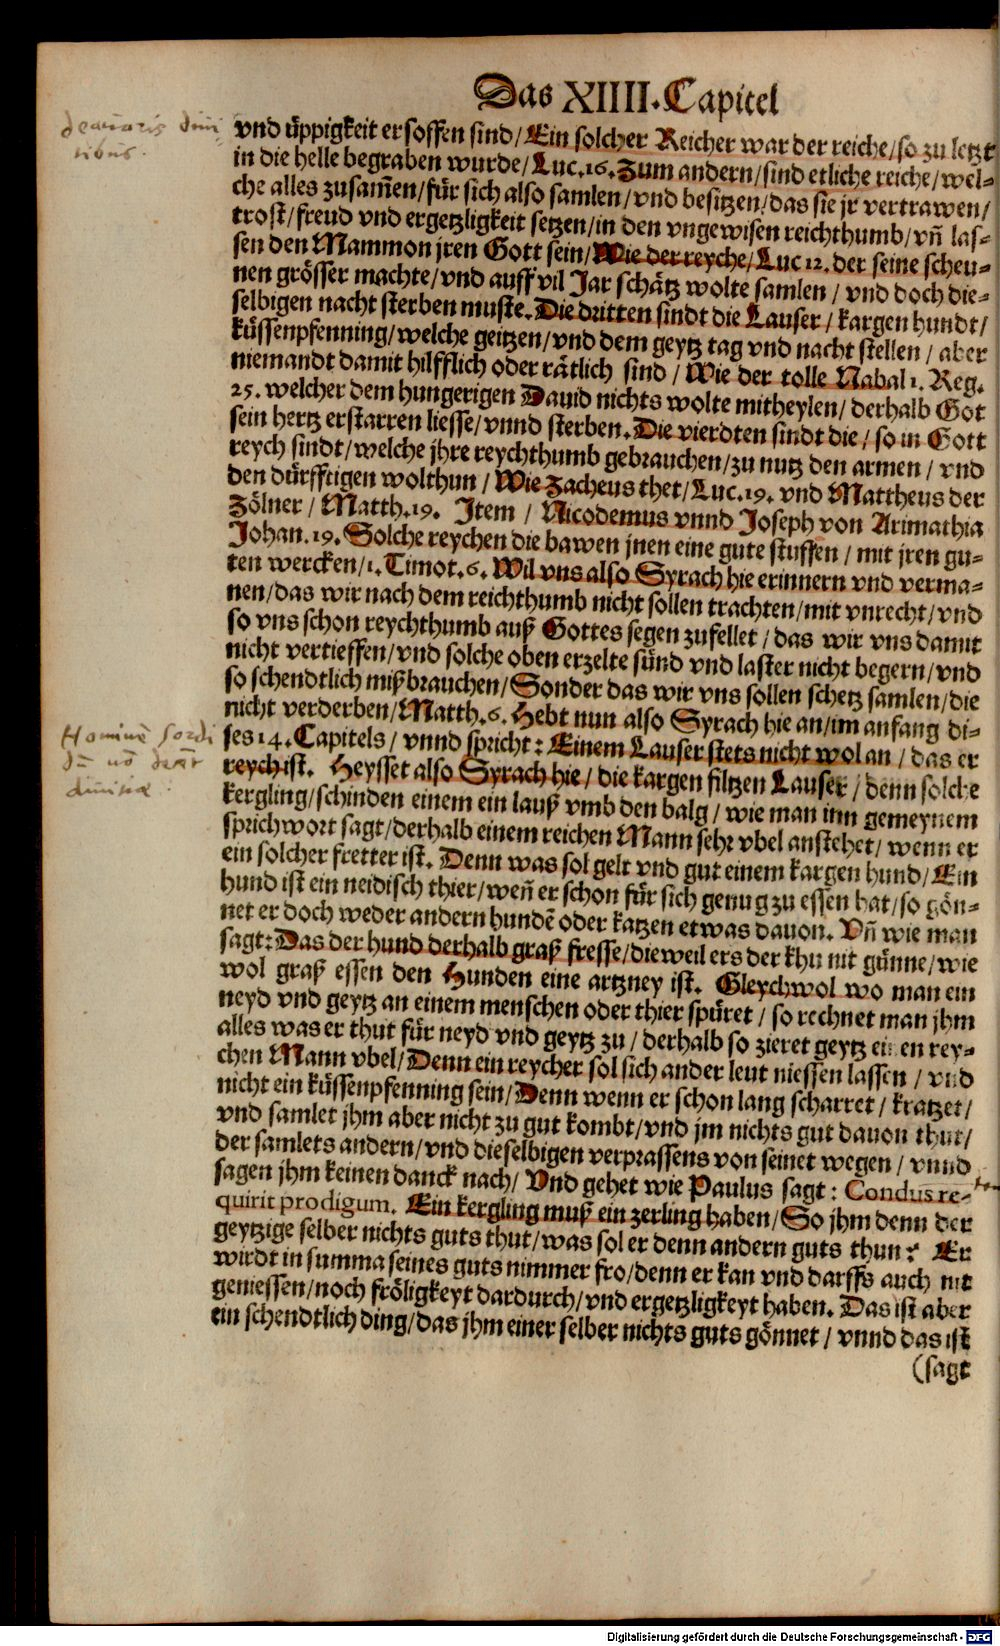 Das XIIII. Capitel
de variis divi
tibus.
vnd üppigkeit ersoffen sind/ Ein solcher Reicher war der reiche/ so zu letzt
in die helle begraben wurde/ Luc. 16. Zum andern/ sind etliche reiche/ wel-
che alles zusam̃en/ für sich also samlen/ vnd besitzen/ das sie jr vertrawen/
trost/ freud vnd ergetzligkeit setzen/ in den vngewisen reichthumb/ vñ las-
sen den Mammon jren Gott sein/ Wie der reyche/ Luc 12. der seine scheu-
nen grösser machte/ vnd auff vil Jar schätz wolte samlen/ vnd doch die-
selbigen nacht sterben muste. Die dritten sindt die Lauser/ kargen hundt/
küssenpfenning/ welche geitzen/ vnd dem geytz tag vnd nacht stellen/ aber
niemandt damit hilfflich oder rätlich sind/ Wie der tolle Nabal 1. Reg.
25. welcher dem hungerigen Dauid nichts wolte mitheylen/ derhalb Got
sein hertz erstarren liesse/ vnnd sterben. Die vierdten sindt die/ so in Gott
reych sindt/ welche jhre reychthumb gebrauchen/ zu nutz den armen/ vnd
den dürfftigen wolthun/ Wie Zacheus thet/ Luc. 19. vnd Mattheus der
Zölner/ Matth. 19. Item/ Nicodemus vnnd Joseph von Arimathia
Johan. 19. Solche reychen die bawen jnen eine gute stuffen/ mit jren gu-
ten wercken/ 1. Timot. 6. Wil vns also Syrach hie erinnern vnd verma-
nen/ das wir nach dem reichthumb nicht sollen trachten/ mit vnrecht/ vnd
so vns schon reychthumb auß Gottes segen zufellet/ das wir vns damit
nicht vertieffen/ vnd solche oben erzelte sünd vnd laster nicht begern/ vnd
so schendtlich mißbrauchen/ Sonder das wir vns sollen schetz samlen/ die
nicht verderben/ Matth. 6. Hebt nun also Syrach hie an/ im anfang di-
ses 14. Capitels/ vnnd spricht: Einem Lauser stets nicht wol an/ das er
reych ist. Heysset also Syrach hie/ die kargen filtzen Lauser/ denn solche
kergling/ schinden einem ein lauß vmb den balg/ wie man inn gemeynem
sprichwort sagt/ derhalb einem reichen Mann sehr vbel anstehet/ wenn er
ein solcher fretter ist. Denn was sol gelt vnd gut einem kargen hund/ Ein
hund ist ein neidisch thier/ weñ er schon für sich genug zu essen hat/ so gön-
net er doch weder andern hundẽ oder katzen etwas dauon. Vñ wie man
sagt: Das der hund derhalb graß fresse/ dieweil ers der khu nit günne/ wie
wol graß essen den Hunden eine artzney ist. Gleychwol wo man ein
neyd vnd geytz an einem menschen oder thier spüret/ so rechnet man jhm
alles was er thut für neyd vnd geytz zu/ derhalb so zieret geytz einen rey-
chen Mann vbel/ Denn ein reycher sol sich ander leut niessen lassen/ vnd
nicht ein küssenpfenning sein/ Denn wenn er schon lang scharret/ kratzet/
vnd samlet jhm aber nicht zu gut kombt/ vnd jm nichts gut dauon thut/
der samlets andern/ vnd dieselbigen verprassens von seinet wegen/ vnnd
sagen jhm keinen danck nach/ Vnd gehet wie Paulus sagt: Condus re-
quirit prodigum. Ein kergling muß ein zerling haben/ So jhm denn der
geytzige selber nichts guts thut/ was sol er denn andern guts thun? Er
wirdt in summa seines guts nimmer fro/ denn er kan vnd darffs auch nit
geniessen/ noch fröligkeyt dardurch/ vnd ergetzligkeyt haben. Das ist aber
ein schendtlich ding/ das jhm einer selber nichts guts gönnet/ vnnd das ist
(sagt
Hominẽ sordi
dū nō decẽt
divitiæ.
Digitalisierung gefördert durch die Deutsche Forschungsgemeinschaft - DFG